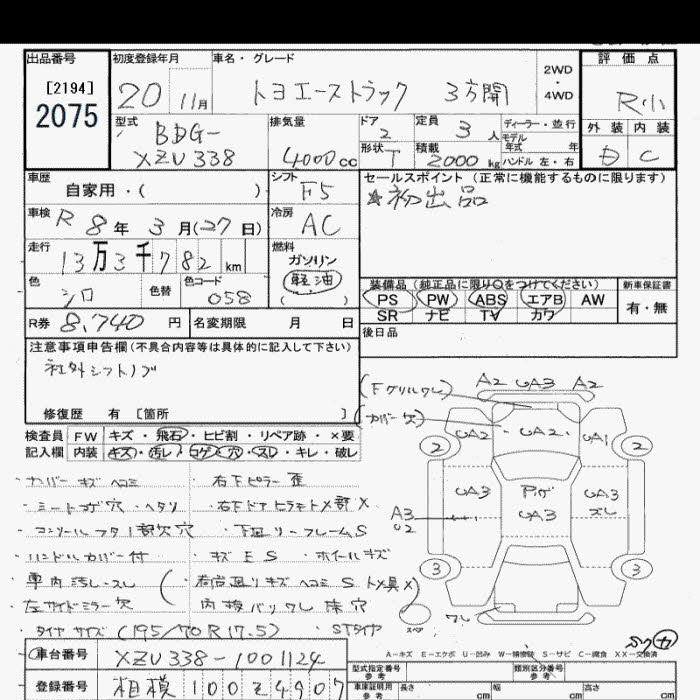 出品番号 初度登録年月 車名・グレード 評価点
[2194]
2075
20 11月 トヨエーストラック 3方開 2WD・4WD R小
型式 BDG-XZU338 排気量 4000cc
ドア 2 定員 3人 ディーラー・並行
モデル年式 年 外装 内装
形状 T 積載 2000kg ハンドル 左・右 D C
車歴 自家用・( ) シフト F5
セールスポイント(正常に機能するものに限ります)
☆初出品
車検 R 8年 3月(27日) 冷房 AC
走行 13万3千782km 燃料 ガソリン 軽油 ( )
色 シロ 色替 色コード 058
装備品(純正品に限り○をつけてください) 新車保証書
PS PW ABS エアB AW 有・無
SR ナビ TV カワ
R券 8,740円 名変期限 月 日 後日品
注意事項申告欄(不具合内容等は具体的に記入して下さい)
社外シフトノブ
修復歴 有 [箇所 ]
検査員記入欄 FW キズ・飛石・ヒビ割・リペア跡・×要
内装 キズ・汚レ・コゲ・穴・スレ・キレ・破レ
(Fグリルワレ) A2 UA3 A2
(カバー欠)
UA2 UA2 UA1
2 2
UA3 UA3 UA3
A3
U2
3 3
スペア
・ナンバーキズヘコミ ・右下ピラー歪
・シートコゲ穴・ヘタリ
・ハンドルカバー付 ・キズES ・ホイールキズ
・車内汚レ・スレ
・左サイドミラー欠
・タイヤサイズ(195/70R17.5) ・STタイヤ
A-キズ E-エクボ U-凹み W-補修跡 S-サビ C-腐食 XX-交換済
車台番号 XZU338-1001124
型式指定番号 参考 類別区分番号 参考
登録番号 相模100そ4907
車庫証明用参考 長さ cm 幅 cm 高さ cm